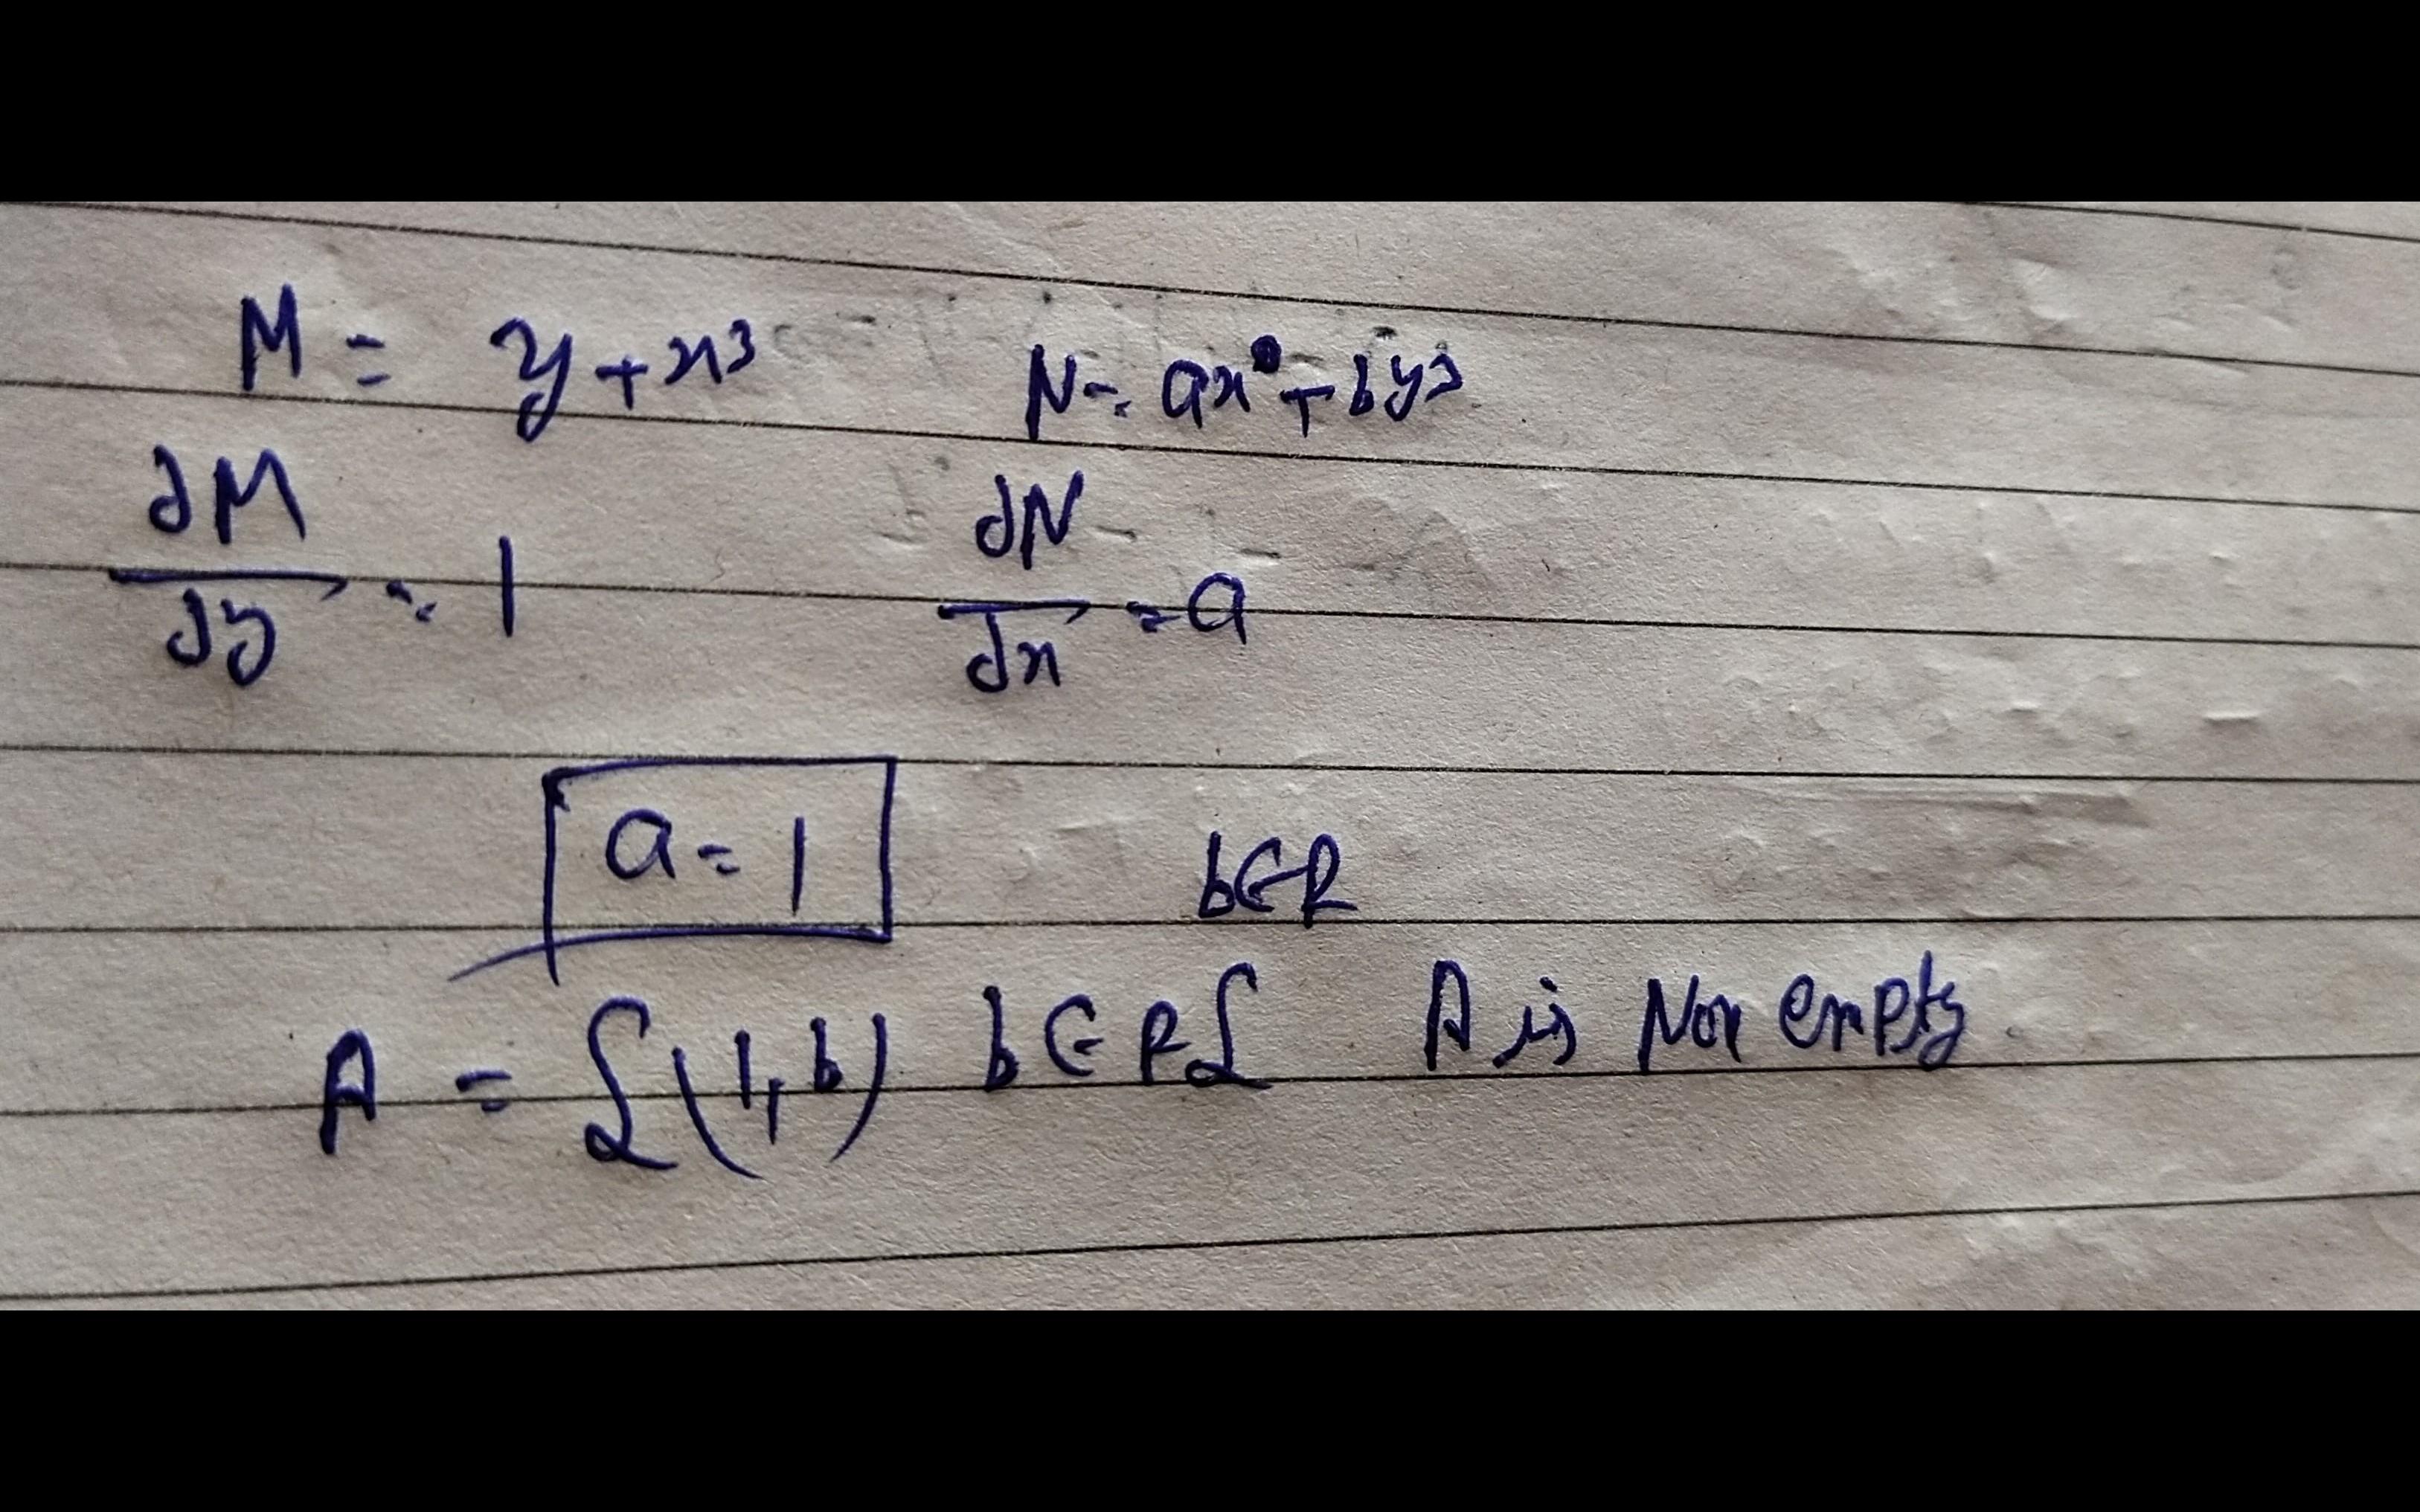 M = y + x³ N = ax + by³
∂M/∂y = 1 ∂N/∂x = a
a = 1 b ∈ R
A = { (1, b) b ∈ R } A is Non empty